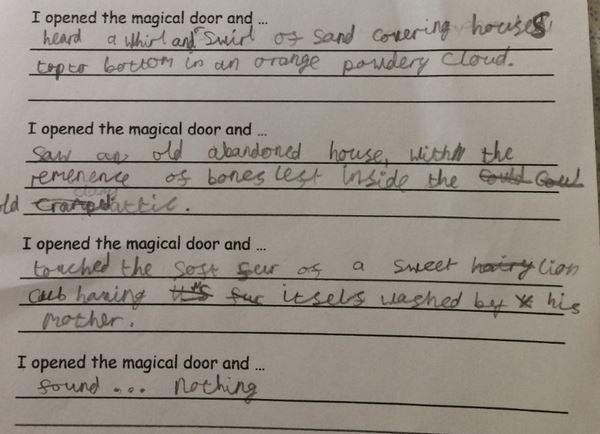 I opened the magical door and ...
heard a whirl and swirl of sand covering houses
top to bottom in an orange powdery cloud.
I opened the magical door and ...
saw an old abandoned house, with the
remenence of bones left inside the
old attic.
I opened the magical door and ...
touched the soft fur of a sweet hairy lion
cub having its fur itself washed by his
mother.
I opened the magical door and ...
found ... nothing